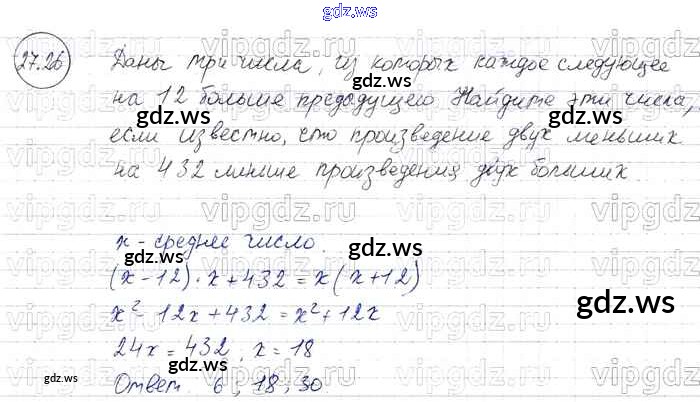 gdz.ws
27.26
Даны три числа, из которых каждое следующее
на 12 больше предыдущего. Найдите эти числа,
если известно, что произведение двух меньших
на 432 меньше произведения двух больших.
x - среднее число.
(x-12)·x+432=x(x+12)
x²-12x+432=x²+12x
24x=432, x=18
Ответ 6; 18; 30.
gdz.ws
gdz.ws
gdz.ws
gdz.ws
gdz.ws
gdz.ws
gdz.ws
vipgdz.ru